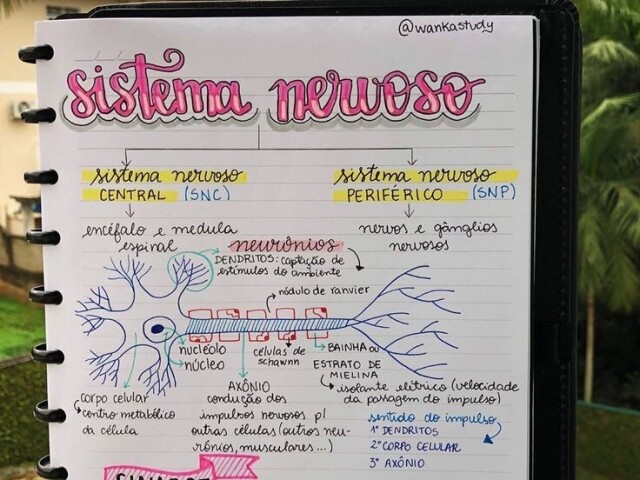 @wankastudy
sistema nervoso
sistema nervoso
CENTRAL (SNC)
sistema nervoso
PERIFÉRICO (SNP)
encéfalo e medula
espinal
nervos e gânglios
nervosos
neurônios
DENDRITOS: captação de
estímulos do ambiente
nódulo de ranvier
nucléolo
núcleo
células de
schawnn
BAINHA ou
ESTRATO DE
MIELINA
isolante elétrico (velocidade
da passagem do impulso)
corpo celular
centro metabólico
da célula
AXÔNIO
condução dos
impulsos nervosos p/
outras células (outros neu-
rônios, musculares...)
sentido do impulso
1º DENDRITOS
2º CORPO CELULAR
3º AXÔNIO